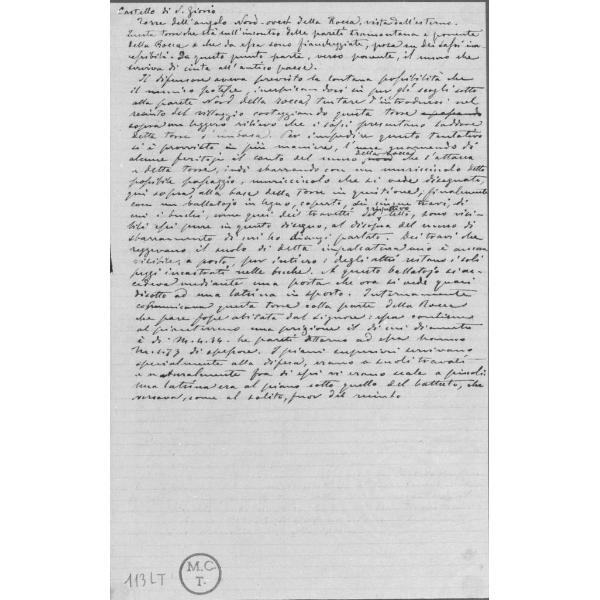 Castello di S. Giorio
Torre dell'angolo Nord-ovest della Rocca, vista dall'esterno.
Questa torre che sta sull'incontro delle pareti tramontana e ponente
della Rocca e che da essa sono fiancheggiate, posa su dei sassi inac-
cessibili. Da questo punto parte, verso ponente, il muro che
serviva di cinta all'antico paese.
Il difensore aveva previsto la lontana possibilità che
il nemico potesse, inerpicandosi su per gli scogli sotto
alla parete Nord della rocca, tentare d'introdursi nel
recinto del villaggio costeggiando questa torre
sopra un leggero rilievo che i sassi presentano laddove
detta torre s'imbasa. Per impedire questo tentativo
si è provvisto in più maniere, l'una guarnendo di
alcune feritoje il canto del muro della Rocca che s'attacca
a detta torre, indi sbarrando con un muricciolo detto
possibile passaggio, muricciolo che si vede disegnato,
qui sopra, alla base della Torre in questione, finalmente
con un ballatojo in legno, coperto, dei cinque travi, di
cui i buchi, come quei dei travetti del rispettivo tetto, sono visi-
bili essi pure in questo disegno, al disopra del muro di
sbarramento di cui ho dianzi parlato. Dei travi che
reggevano il suolo di detta impalcatura uno è ancora
visibile, a posto, per intiero; degli altri restano i soli
pezzi incastrati nelle buche. A questo ballatojo si ac-
cedeva mediante una porta che ora si vede quasi
disotto ad una latrina in sporto. Internamente
comunicava questa torre colla parte della Rocca
che pare fosse abitata dal Signore: essa contiene
al pianterreno una prigione il di cui diametro
è di M. 4.34. Le pareti attorno ad essa hanno
M. 1.73 di spessore. I piani superiori servivano
specialmente alla difesa, erano a suoli travati
e naturalmente fra di essi vi erano scale a piuoli.
Una latrina era al piano sotto quello del battuto, che
versava, come al solito, fuor del recinto.
113 LT
M.C.
T.